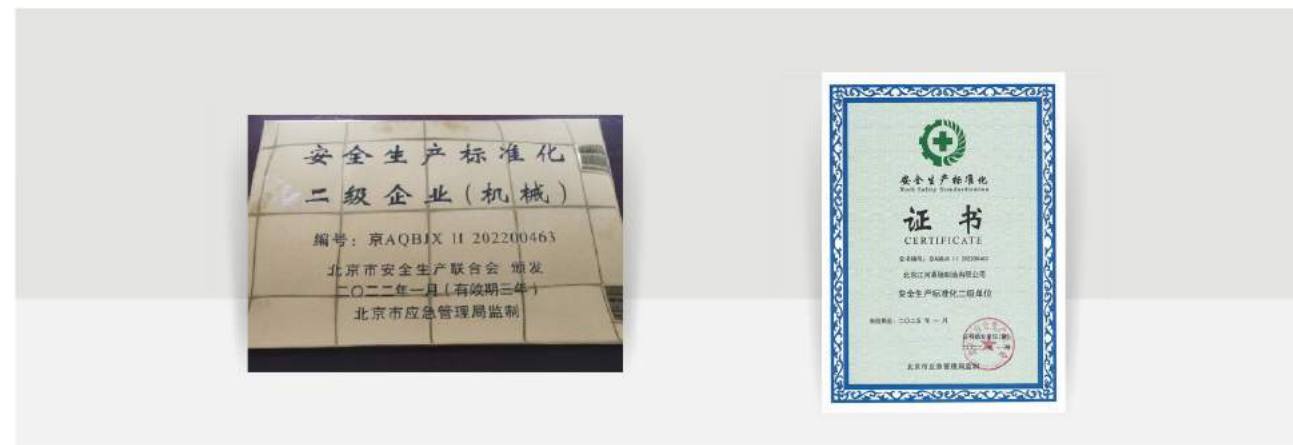 安全生产标准化
二级企业(机械)
编号:京AQBJX II 202200463
北京市安全生产联合会 颁发
二〇二二年一月(有效期三年)
北京市应急管理局监制
安全生产标准化
Work Safety Standardization
证 书
CERTIFICATE
证书编号:京AQBJX II 202200463
北京江河幕墙制造有限公司
安全生产标准化二级单位
有效期至:二〇二五 年 一 月
北京市应急管理局监制